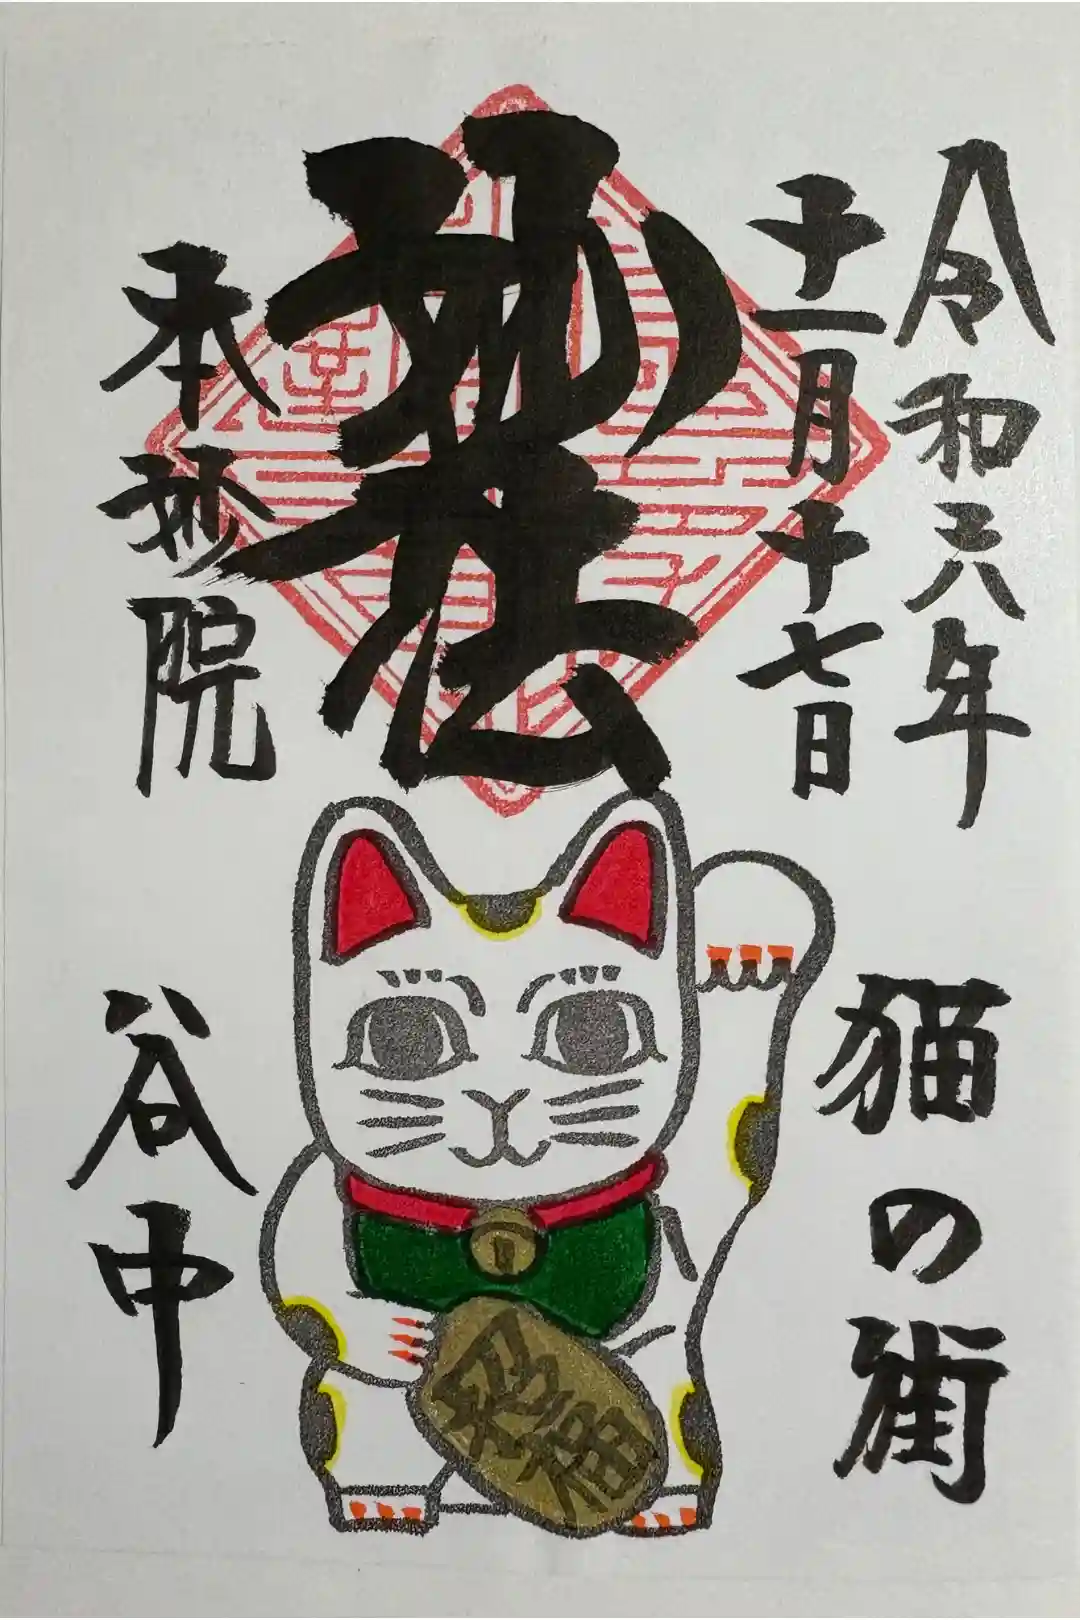 令和六年
十一月十七日
妙法
本妙院
猫の街
招福
谷中